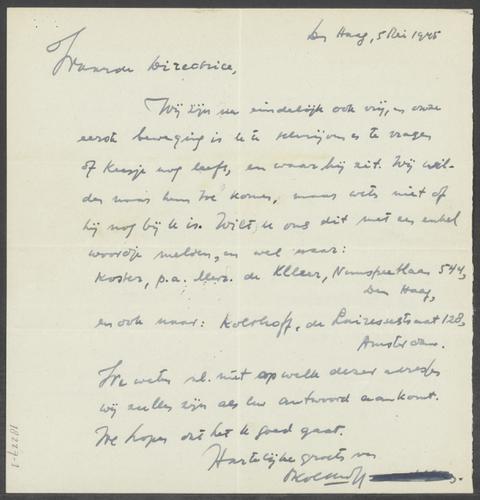 Den Haag, 5 Mei 1945
Waarde Directrice,
Wij zijn nu eindelijk ook vrij, en onze
eerste beweging is U te schrijven en te vragen
of Keesje nog leeft, en waar hij zit. Wij wil-
den naar hem toe komen, maar weten niet of
hij nog bij U is. Wilt U ons dit met een enkel
woordje melden, en wel naar:
Koster, p.a. Mevr. de, Nunspeetlaan 544,
Den Haag,
en ook naar: Kolthoff, de Lairessestraat 128,
Amsterdam.
We weten nl. niet op welk dezer adressen
wij zullen zijn als Uw antwoord aankomt.
We hopen dat het U goed gaat.
Hartelijke groeten van
Kolthoff
18227-1